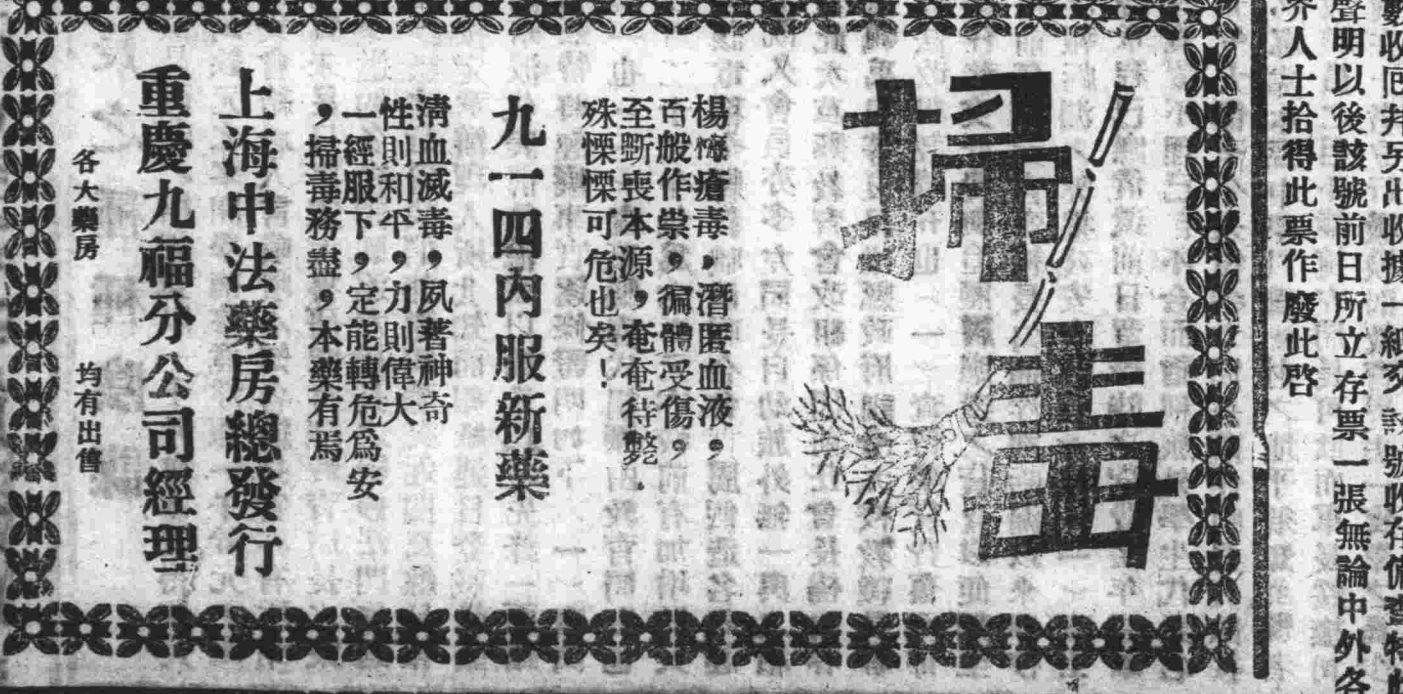 數收回幷另出收據一紙交該號收存備查特此
聲明以後該號前日所立存票一張無論中外各
界人士拾得此票作廢此啓
掃毒
楊梅瘡毒，潛匿血液，
百般作祟，徧體受傷，
至斵喪本源，奄奄待斃．
殊慄慄可危也矣！
九一四內服新藥
淸血滅毒，夙著神奇
性則和平，力則偉大
一經服下，定能轉危爲安
，掃毒務盡，本藥有焉
上海中法藥房總發行
重慶九福分公司經理
各大藥房　均有出售